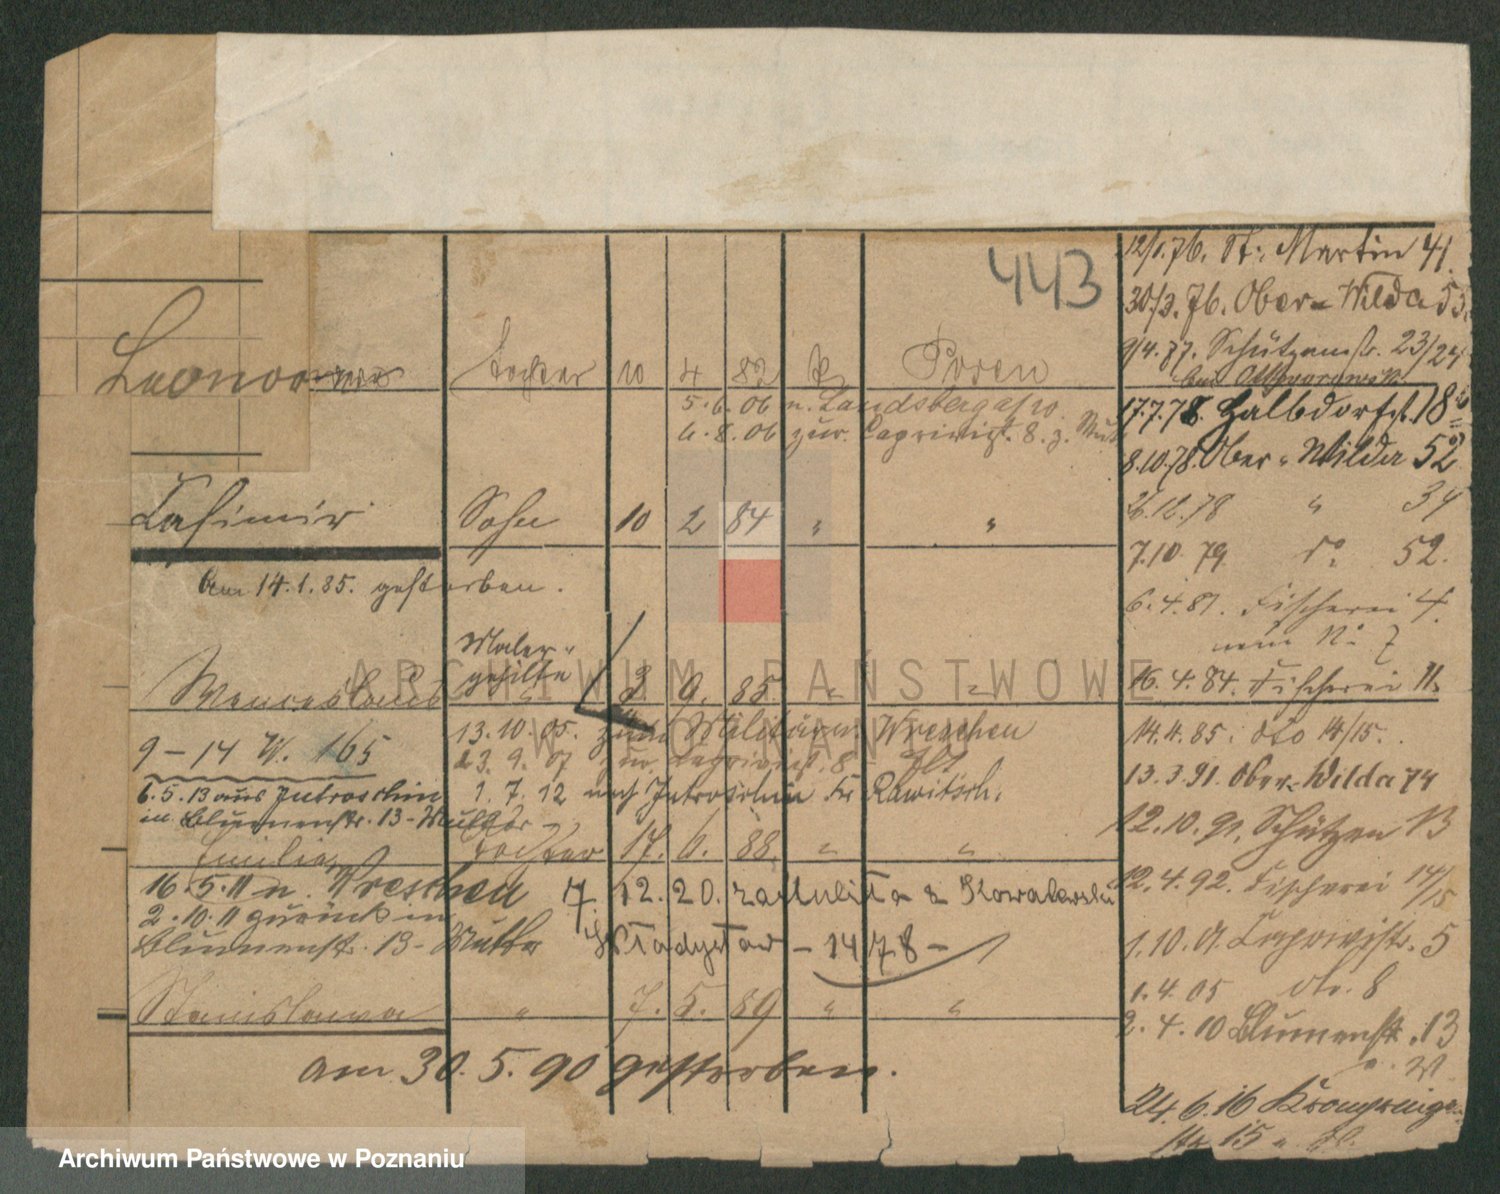 443
Leonor
Tochter 10 4 82 k Posen
5.6.06 n. Landsberga/W.
6.8.06 zur. Caprivistr. 8. z. Mutt
Casimir Sohn 10 2 84 " "
Am 14.1.85. gestorben.
Wenceslaus Maler-
gehilfe 3 9. 85. " "
9-14 W. 165
13.10.05. zum Militär n. Wreschen
23.9.07 zur. Caprivist. 8
6.5.13 aus Jutroschin
1.7.12 nach Jutroschin Kr Rawitsch.
in Blumenstr. 13 - Mutter
Emilia Tochter 17. 6. 88. " "
16.5.11 n. Wreschen
7. 12. 20. zaślubiła z Kowalewski
2.10.11 zurück in
Blumenstr. 13 - Mutter
Władysław - 1478 -
Stanislawa " 7. 5. 89 " "
am 30.5.90 gestorben.
12/1.76. St: Martin 41.
30/3.76. Ober-Wilda 53.
9/4.77. Schützenstr. 23/24
bei
17.7.78. Halbdorfst. 18
8.10.78. Ober-Wilda 52
12.78 " 34
7.10 79 do 52.
6.4.81. Fischerei 4.
neue No 7
16.4.84. Fischerei 11.
14.4.85. dto 14/15.
13.3.91. Ober-Wilda 74
12.10.91. Schützen 13
12.4.92. Fischerei 14/15
1.10.01. Caprivistr. 5
1.4.05 dto. 8
2.4.10 Blumenstr. 13
24.6.16 Kronprinzen
str 15
ARCHIWUM PAŃSTWOWE
W POZNANIU
Archiwum Państwowe w Poznaniu